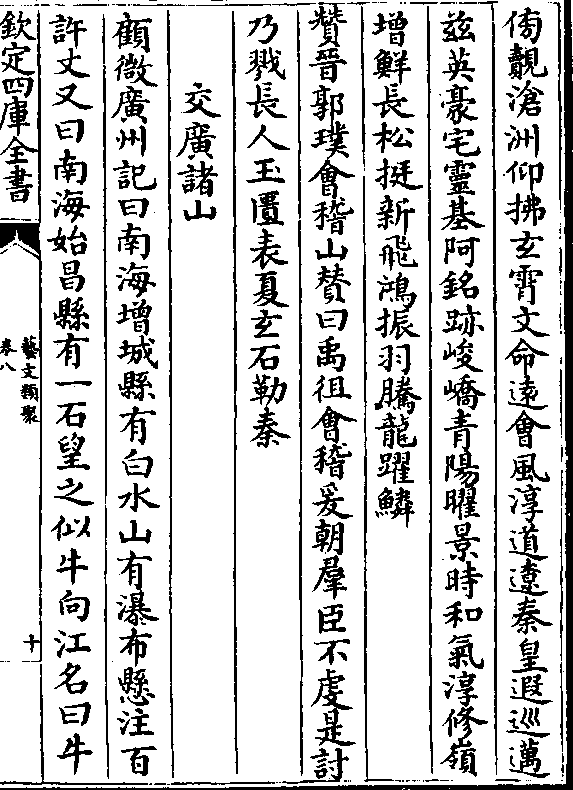 俯覿滄洲仰拂玄霄文命遠會風淳道遼秦皇遐巡邁
兹英豪宅靈基阿銘跡峻嶠青陽曜景時和氣淳修嶺
增鮮長松挺新飛鴻振羽騰龍躍鱗
贊晉郭璞會稽山贊曰禹徂會稽爰朝羣臣不虔是討
乃戮長人玉匱表夏玄石勒秦
交廣諸山
顧微廣州記曰南海增城縣有白水山有瀑布懸注百
許丈又曰南海始昌縣有一石望之似牛向江名曰牛
欽定四庫全書
藝文類聚
卷八
十